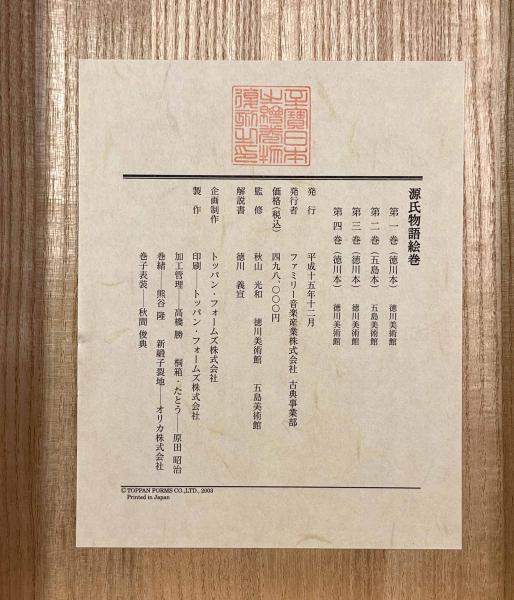 至寶日本
古典籍巻物
復刻之印
源氏物語絵巻
第一巻（徳川本）　徳川美術館
第二巻（五島本）　五島美術館
第三巻（徳川本）　徳川美術館
第四巻（徳川本）　徳川美術館
発　行　平成十五年十二月
発行者　ファミリー音楽産業株式会社　古典事業部
価格（税込）　四九八、〇〇〇円
監　修　秋山　光和　徳川美術館　五島美術館
解説書　徳川　義宣
企画制作　トッパン・フォームズ株式会社
製　作　印刷　トッパン・フォームズ株式会社
加工管理――高橋 勝　桐箱・たとう――原田 昭治
巻緒――熊谷 隆　新緞子裂地――オリカ株式会社
巻子表装――秋間 俊典
© TOPPAN FORMS CO.,LTD., 2003
Printed in Japan